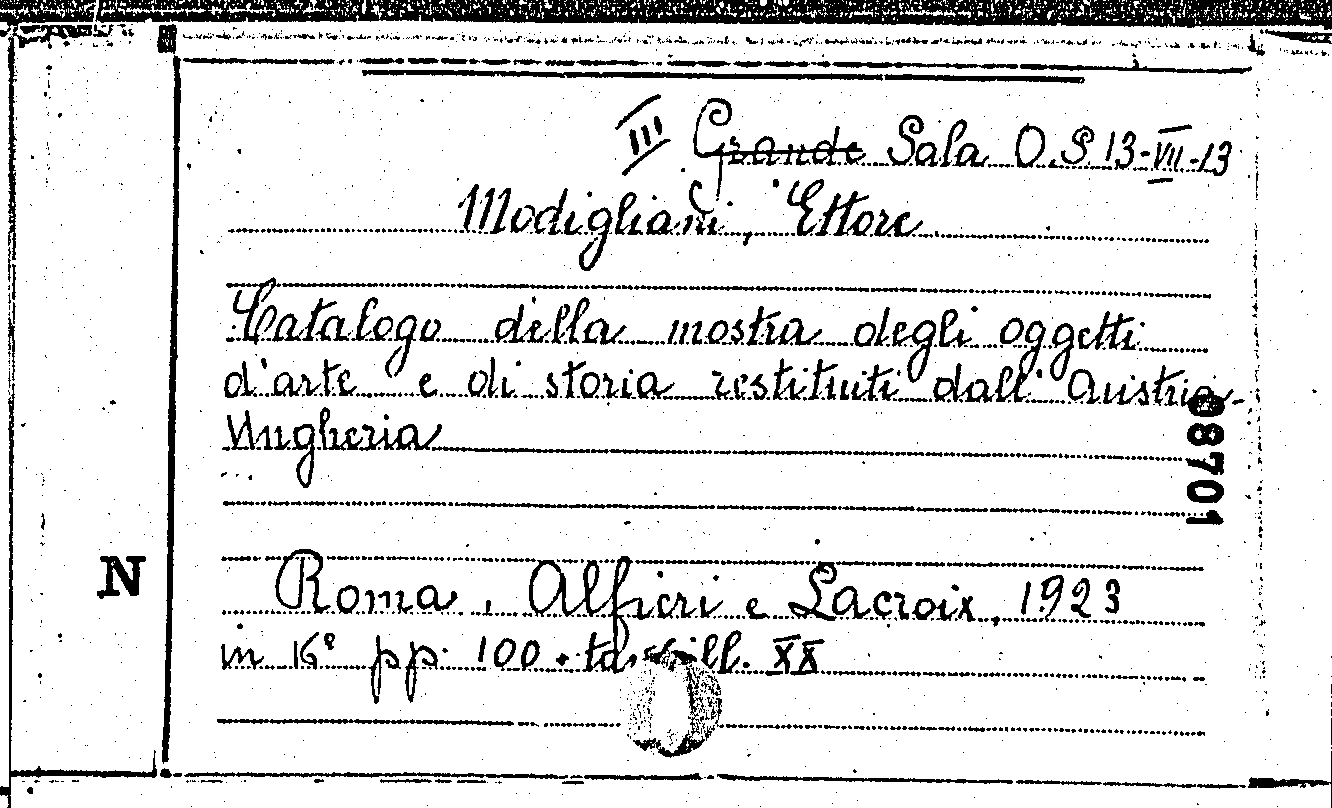 III Grande Sala O.S 13-VII-13
Modigliani, Ettore
Catalogo della mostra degli oggetti
d'arte e di storia restituiti dall'Austria-
Ungheria
08701
N
Roma, Alfieri e Lacroix, 1923
in 16° pp. 100. ill. XX